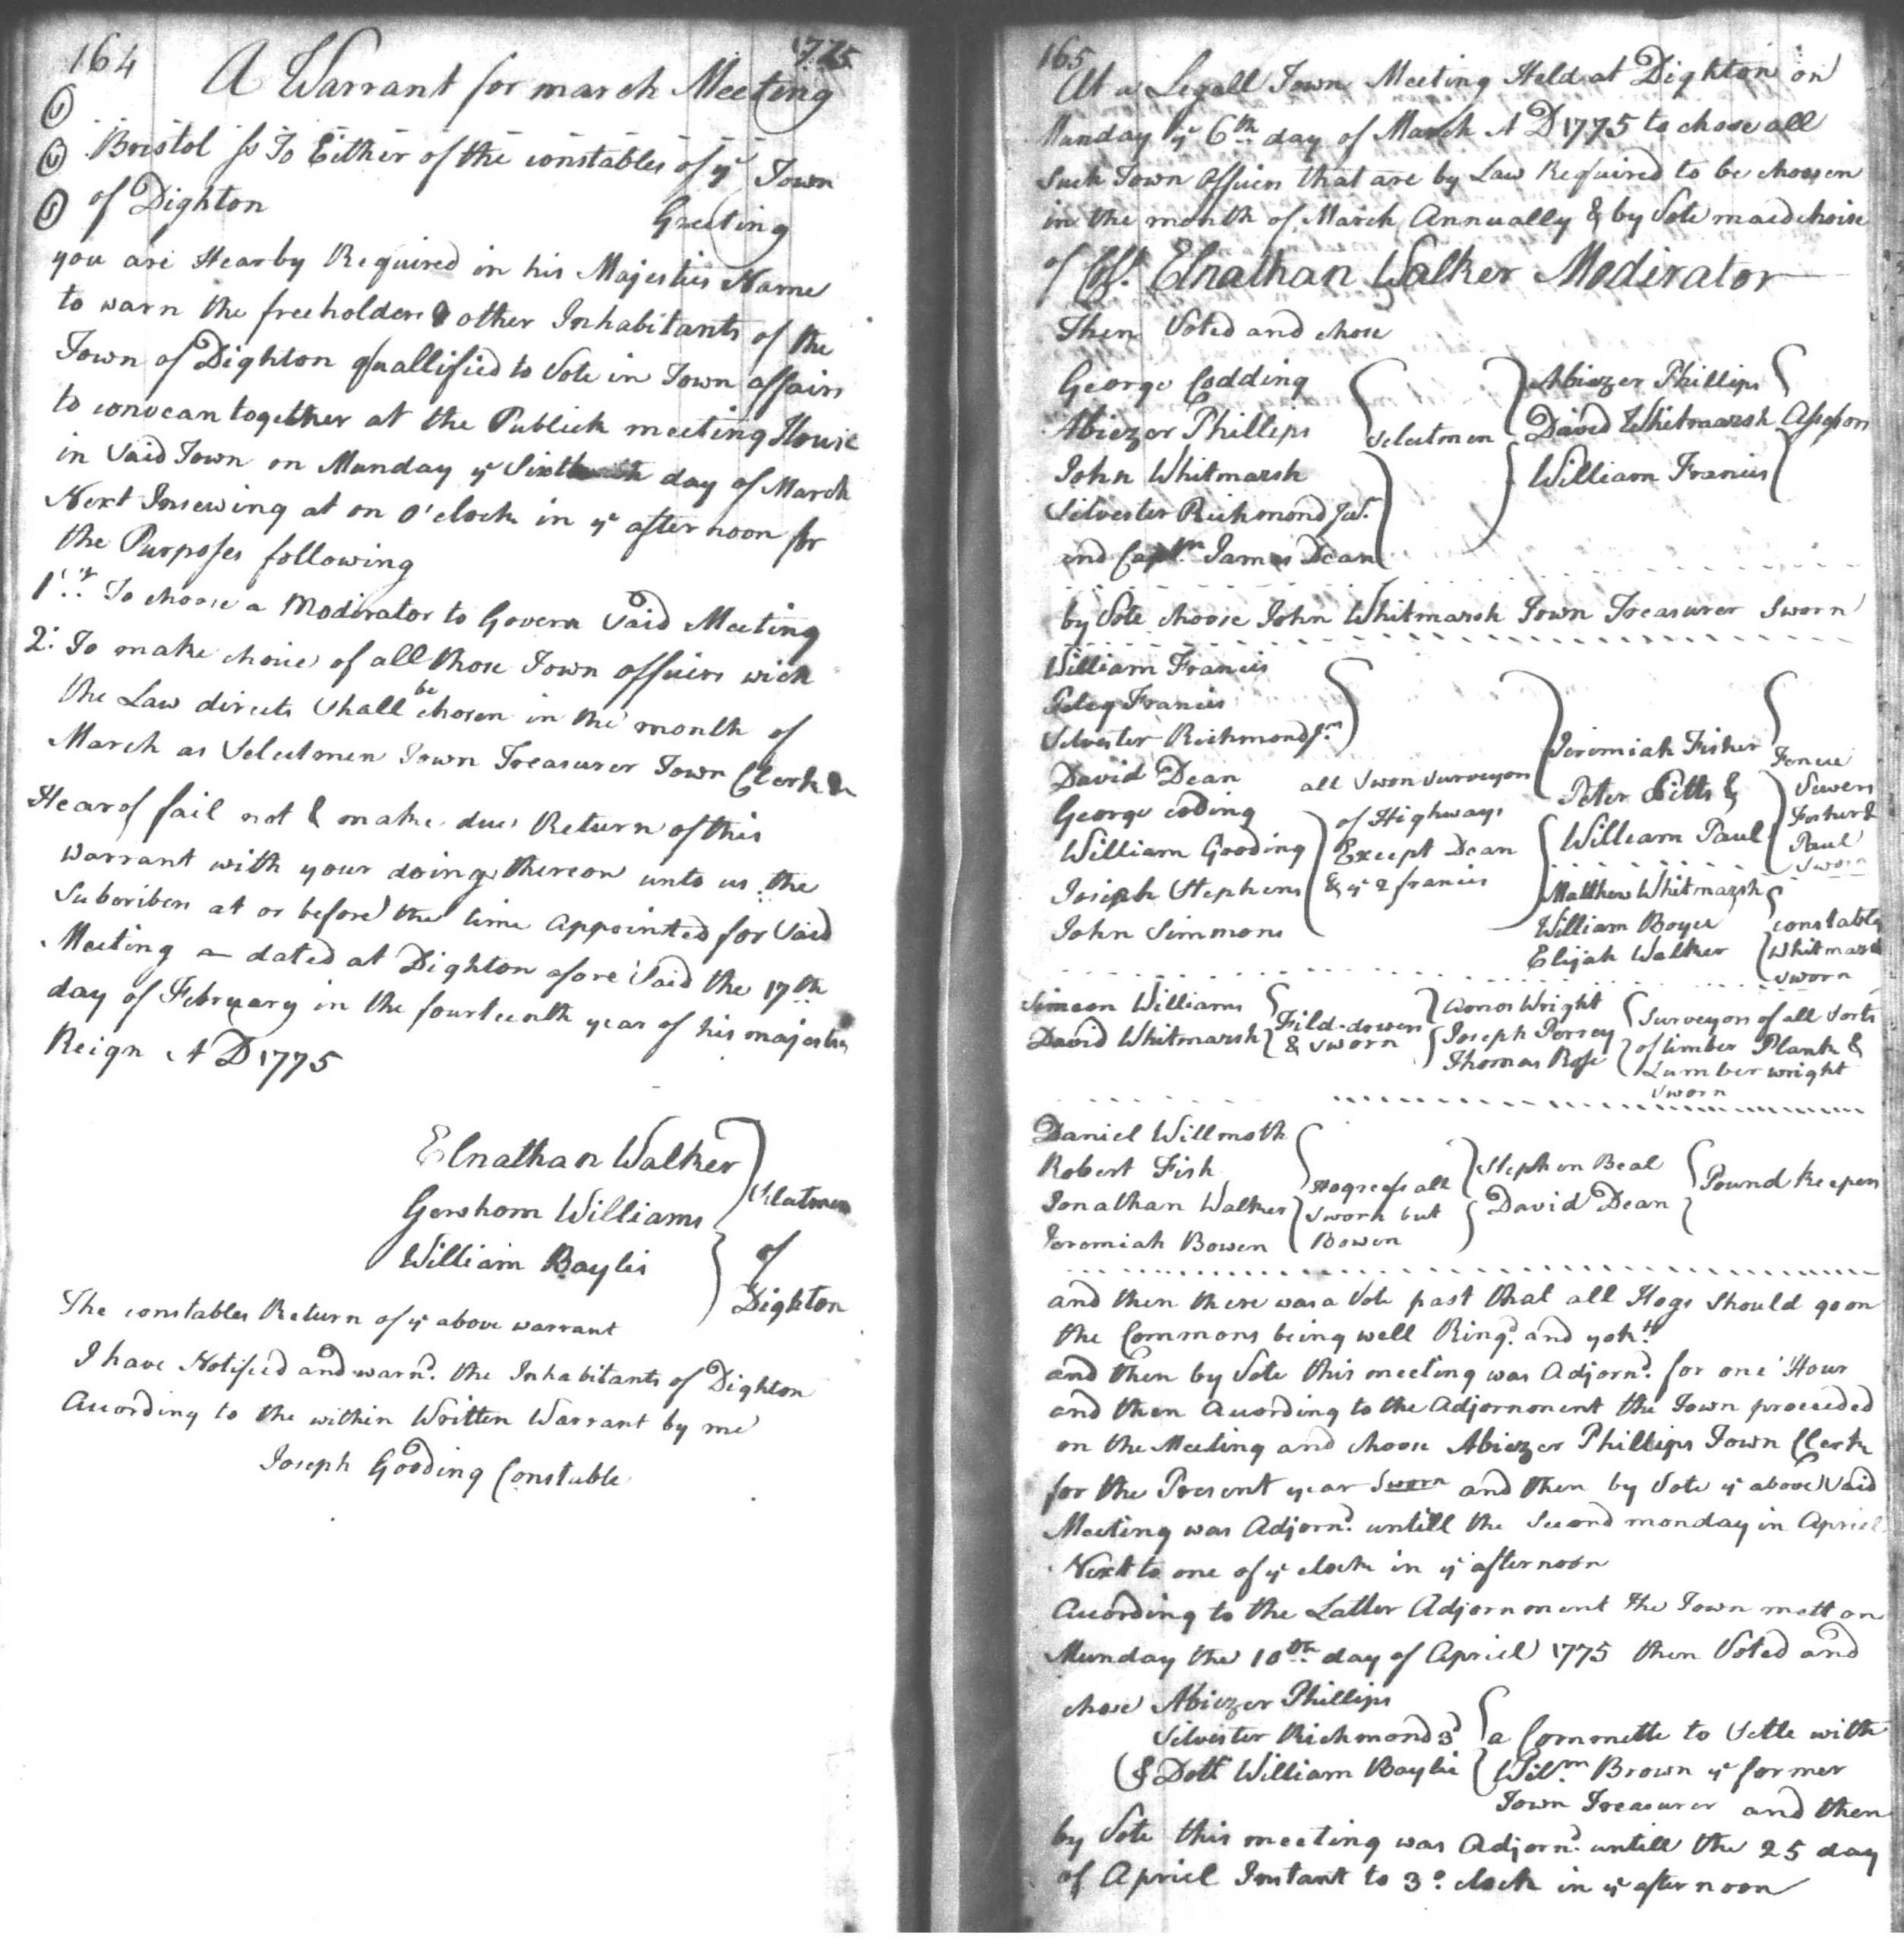 164
1775
A Warrant for march Meeting
Bristol ss To Either of the constables of ye Town
of Dighton Greeting
you are Hearby Required in his Majesties Name
to warn the freeholders & other Inhabitants of the
Town of Dighton quallified to Vote in Town affairs
to convean together at the Publick meeting House
in Said Town on Munday ye Sixth day of March
Next Insewing at on o'clock in ye after noon for
the Purposes following
1st To choose a Moderator to Govern Said Meeting
2: To make choice of all those Town officers wich
the Law directs Shall be chosen in the month of
March as Selectmen Town Treasurer Town Clerk &
Hearof fail not & make due Return of this
warrant with your doings thereon unto us the
Subcribers at or before the time appointed for Said
Meeting dated at Dighton afore Said the 17th
day of February in the fourteenth year of his majesties
Reign A D 1775
Elnathan Walker
Gershom Williams
William Baylis
Selectmen
of
Dighton
The constables Return of ye above warrant
I have Notified and warnd. the Inhabitants of Dighton
Acording to the within Written Warrant by me
Joseph Gooding Constable
165
At a Legall Town Meeting Held at Dighton on
Munday ye 6th day of March A D 1775 to chose all
Such Town officers that are by Law Required to be choosen
in the month of March Annually & by Vote maed choise
of Elnathan Walker Moderator
Then Voted and chose
George Codding
Abiezer Phillips
John Whitmarsh
Silvester Richmond Jur.
and Captn. James Dean
Selectmen
Abiezer Phillips
David Whitmarsh
William Francis
Assessors
by Vote choose John Whitmarsh Town Treasurer Sworn
William Francis
Peleg Francis
Silvester Richmond Jn
David Dean
George coding
William Gooding
Joseph Stephens
John Simmons
all Swon Surveyors
of Highways
Except Dean
& ye 2 francis
Jeremiah Fisher
Peter Pitts &
William Paul
Fence
Vewers
Fisher &
Paul
Sworn
Matthew Whitmarsh
William Boyce
Elijah Walker
constables
Whitmarsh
Sworn
Simeon Williams
David Whitmarsh
Fild-dowers
& Sworn
Aonos Wright
Joseph Perrey
Thomas Rose
Surveyors of all Sorts
of timber Plank &
Lumber wright
Sworn
Daniel Willmoth
Robert Fish
Jonathan Walker
Jeremiah Bowen
Hogreefs all
Sworn but
Bowen
Stephen Beal
David Dean
Pound keepers
and then there was a Vote past that all Hogs Should go on
the Commons being well Ringd. and yokt
and then by Vote this meeting was Adjornd. for one Hour
and then Acording to the Adjornoment the Town proceeded
on the Meeting and choose Abiezer Phillips Town Clerk
for the Present year Sworn and then by Vote ye above Said
Meeting was Adjornd. untill the Second monday in Apriel
Next to one of ye clock in ye afternoon
Acording to the Latter Adjornment the Town mett on
Munday the 10th day of Apriel 1775 then Voted and
chose Abiezer Phillips
Silvester Richmond 3d
& Doctr William Baylie
a Commette to Settle with
Willm. Brown ye former
Town Treasurer and then
by Vote this meeting was Adjornd. untill the 25 day
of Apriel Instant to 3 o clock in ye after noon